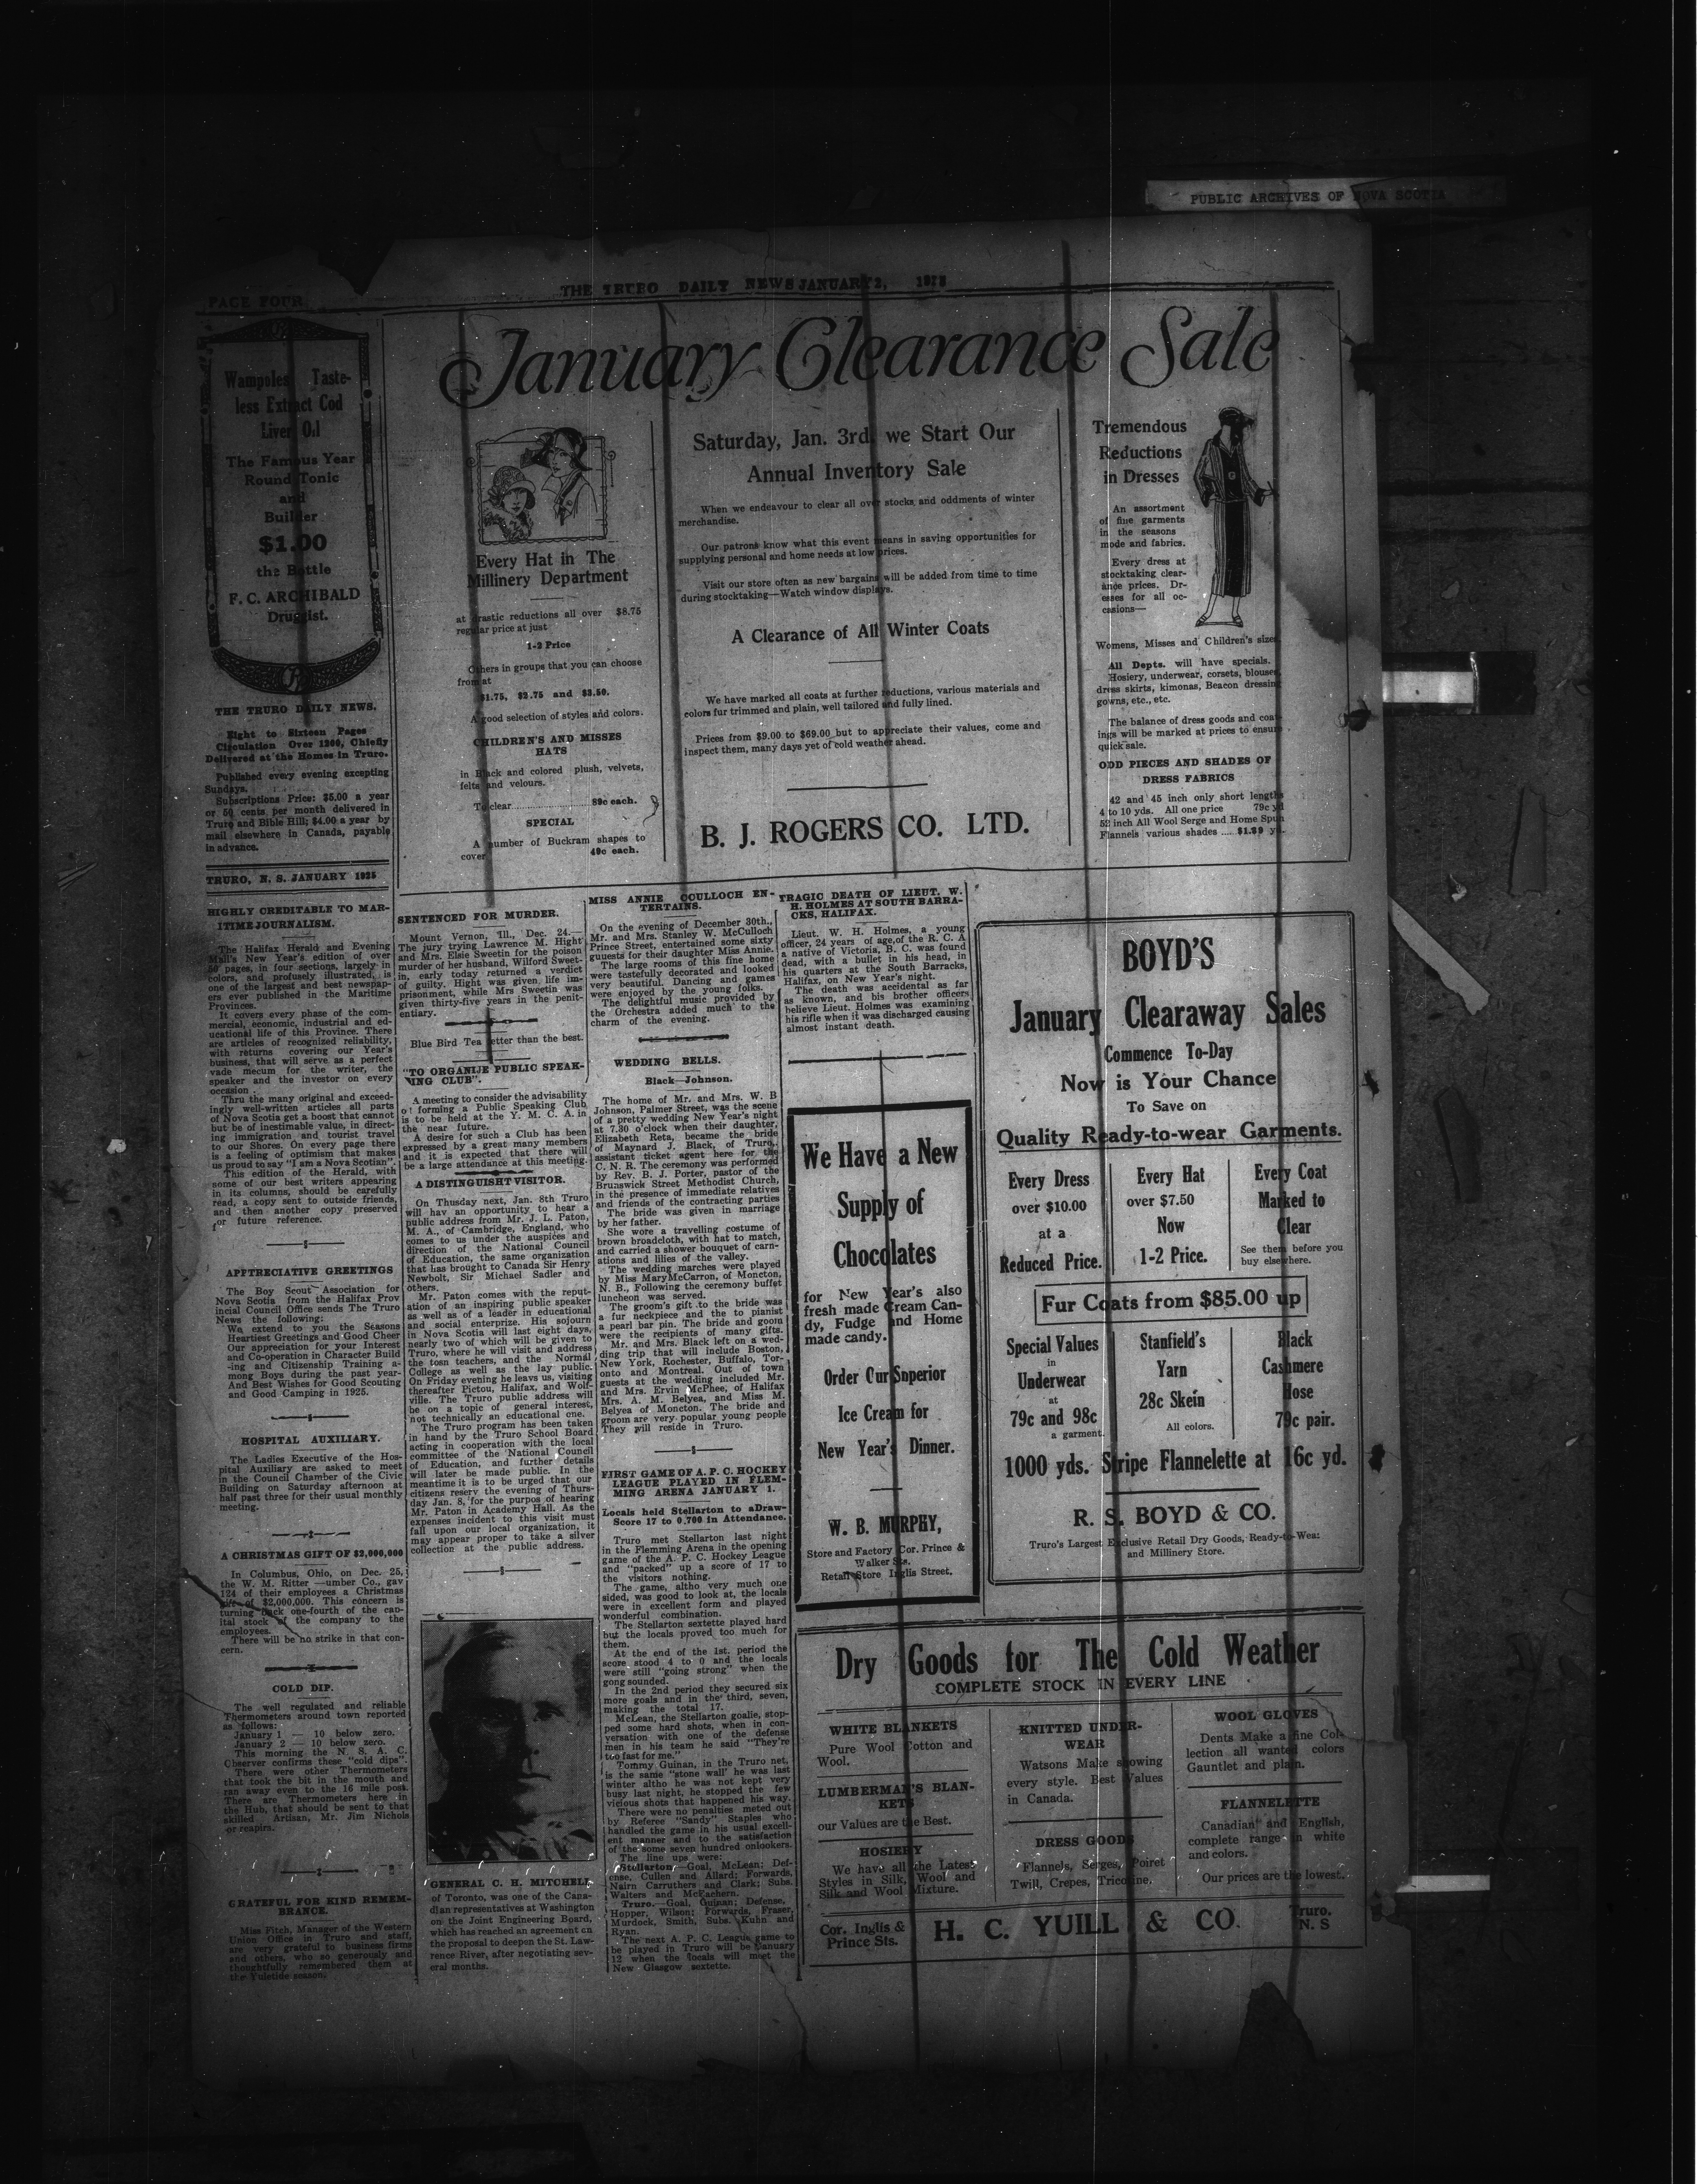 PUBLIC ARCHIVES OF NOVA SCOTIA
PAGE FOUR
THE TRURO DAILY NEWS JANUARY 2,
Wampoles Taste-
less Extract Cod
Liver Oil
The Famous Year
Round Tonic
and
Builder
$1.00
the Bottle
F. C. ARCHIBALD
Druggist.
THE TRURO DAILY NEWS.
Eight to Sixteen Pages
Circulation Over 1200, Chiefly
Delivered at the Homes in Truro.
Published every evening excepting
Sundays.
Subscriptions Price: $5.00 a year
or 50 cents per month delivered in
Truro and Bible Hill; $4.00 a year by
mail elsewhere in Canada, payable
in advance.
TRURO, N. S. JANUARY 1925
HIGHLY CREDITABLE TO MAR-
ITIME JOURNALISM.
The Halifax Herald and Evening
Mail's New Year's edition of over
50 pages, in four sections, largely in
colors, and profusely illustrated, is
one of the largest and best newspap-
ers ever published in the Maritime
Provinces.
It covers every phase of the com-
mercial, economic, industrial and ed-
ucational life of this Province. There
are articles of recognized reliability,
with returns covering our Year's
business, that will serve as a perfect
vade mecum for the writer, the
speaker and the investor on every
occasion.
Thru the many original and exceed-
ingly well-written articles all parts
of Nova Scotia get a boost that cannot
but be of inestimable value, in direct-
ing immigration and tourist travel
to our Shores. On every page there
is a feeling of optimism that makes
us proud to say "I am a Nova Scotian".
This edition of the Herald, with
some of our best writers appearing
in its columns, should be carefully
read, a copy sent to outside friends,
and then another copy preserved
for future reference.
APPTRECIATIVE GREETINGS
The Boy Scout Association for
Nova Scotia from the Halifax Prov
incial Council Office sends The Truro
News the following:
We extend to you the Seasons
Heartiest Greetings and Good Cheer
Our appreciation for your Interest
and Co-operation in Character Build
-ing and Citizenship Training a-
mong Boys during the past year-
And Best Wishes for Good Scouting
and Good Camping in 1925.
HOSPITAL AUXILIARY.
The Ladies Executive of the Hos-
pital Auxiliary are asked to meet
in the Council Chamber of the Civic
Building on Saturday afternoon at
half past three for their usual monthly
meeting.
A CHRISTMAS GIFT OF $2,000,000
In Columbus, Ohio, on Dec. 25,
the W. M. Ritter —umber Co., gav
124 of their employees a Christmas
gift of $2,000,000. This concern is
turning back one-fourth of the cap-
ital stock of the company to the
employees.
There will be no strike in that con-
cern.
COLD DIP.
The well regulated and reliable
Thermometers around town reported
as follows:
January 1 — 10 below zero.
January 2 — 10 below zero.
This morning the N. S. A. C.
Observer confirms these "cold dips".
There were other Thermometers
that took the bit in the mouth and
ran away even to the 16 mile post.
There are Thermometers here in
the Hub, that should be sent to that
skilled Artisan, Mr. Jim Nichols
or reapirs.
GRATEFUL FOR KIND REMEM-
BRANCE.
Miss Fitch, Manager of the Western
Union Office in Truro and staff,
are very grateful to business firms
and others, who so generously and
thoughtfully remembered them at
the Yuletide season.
January Clearance Sale
Every Hat in The
Millinery Department
at drastic reductions all over $8.75
regular price at just
1-2 Price
Others in groups that you can choose
from at
$1.75, $2.75 and $3.50.
A good selection of styles and colors.
CHILDREN'S AND MISSES
HATS
in Black and colored plush, velvets,
felts and velours.
To clear..........89c each.
SPECIAL
A number of Buckram shapes to
cover 49c each.
Saturday, Jan. 3rd, we Start Our
Annual Inventory Sale
When we endeavour to clear all over stocks and oddments of winter
merchandise.
Our patrons know what this event means in saving opportunities for
supplying personal and home needs at low prices.
Visit our store often as new bargains will be added from time to time
during stocktaking—Watch window displays.
A Clearance of All Winter Coats
We have marked all coats at further reductions, various materials and
colors fur trimmed and plain, well tailored and fully lined.
Prices from $9.00 to $69.00 but to appreciate their values, come and
inspect them, many days yet of cold weather ahead.
B. J. ROGERS CO. LTD.
Tremendous
Reductions
in Dresses
An assortment
of fine garments
in the seasons
mode and fabrics.
Every dress at
stocktaking clear-
ance prices. Dr-
esses for all oc-
casions—
Womens, Misses and Children's sizes
All Depts. will have specials.
Hosiery, underwear, corsets, blouses
dress skirts, kimonas, Beacon dressing
gowns, etc., etc.
The balance of dress goods and coat-
ings will be marked at prices to ensure
quick sale.
ODD PIECES AND SHADES OF
DRESS FABRICS
42 and 45 inch only short lengths
4 to 10 yds. All one price 79c yd
52 inch All Wool Serge and Home Spun
Flannels various shades .... $1.39 yd.
SENTENCED FOR MURDER.
Mount Vernon, Ill., Dec. 24.—
The jury trying Lawrence M. Hight
and Mrs. Elsie Sweetin for the poison
murder of her husband, Wilford Sweet-
in, early today returned a verdict
of guilty. Hight was given life im-
prisonment, while Mrs Sweetin was
given thirty-five years in the penit-
entiary.
Blue Bird Tea better than the best.
"TO ORGANIJE PUBLIC SPEAK-
ING CLUB".
A meeting to consider the advisability
of forming a Public Speaking Club
is to be held at the Y. M. C. A. in
the near future.
A desire for such a Club has been
expressed by a great many members
and it is expected that there will
be a large attendance at this meeting.
A DISTINGUISHT VISITOR.
On Thusday next, Jan. 8th Truro
will hav an opportunity to hear a
public address from Mr. J. L. Paton,
M. A., of Cambridge, England, who
comes to us under the auspices and
direction of the National Council
of Education, the same organization
that has brought to Canada Sir Henry
Newbolt, Sir Michael Sadler and
others.
Mr. Paton comes with the reput-
ation of an inspiring public speaker
as well as of a leader in educational
and social enterprize. His sojourn
in Nova Scotia will last eight days,
nearly two of which will be given to
Truro, where he will visit and address
the tosn teachers, and the Normal
College as well as the lay public.
On Friday evening he leavs us, visiting
thereafter Pictou, Halifax, and Wolf-
ville. The Truro public address will
be on a topic of general interest,
not technically an educational one.
The Truro program has been taken
in hand by the Truro School Board
acting in cooperation with the local
committee of the National Council
of Education, and further details
will later be made public. In the
meantime it is to be urged that our
citizens reserv the evening of Thurs-
day Jan. 8, for the purpos of hearing
Mr. Paton in Academy Hall. As the
expenses incident to this visit must
fall upon our local organization, it
may appear proper to take a silver
collection at the public address.
GENERAL C. H. MITCHELL
of Toronto, was one of the Cana-
dian representatives at Washington
on the Joint Engineering Board,
which has reached an agreement on
the proposal to deepen the St. Law-
rence River, after negotiating sev-
eral months.
MISS ANNIE CCULLOCH EN-
TERTAINS.
On the evening of December 30th.,
Mr. and Mrs. Stanley W. McCulloch
Prince Street, entertained some sixty
guuests for their daughter Miss Annie.
The large rooms of this fine home
were tastefully decorated and looked
very beautiful. Dancing and games
were enjoyed by the young folks.
The delightful music provided by
the Orchestra added much to the
charm of the evening.
WEDDING BELLS.
Black—Johnson.
The home of Mr. and Mrs. W. B
Johnson, Palmer Street, was the scene
of a pretty wedding New Year's night
at 7.30 o'clock when their daughter,
Elizabeth Reta, became the bride
of Maynard J. Black, of Truro,
assistant ticket agent here for the
C. N. R. The ceremony was performed
by Rev. B. J. Porter, pastor of the
Brunswick Street Methodist Church,
in the presence of immediate relatives
and friends of the contracting parties
The bride was given in marriage
by her father.
She wore a travelling costume of
brown broadcloth, with hat to match,
and carried a shower bouquet of carn-
ations and lilies of the valley.
The wedding marches were played
by Miss Mary McCarron, of Moncton,
N. B., Following the ceremony buffet
luncheon was served.
The groom's gift to the bride was
a fur neckpiece and the to pianist
a pearl bar pin. The bride and goom
were the recipients of many gifts.
Mr. and Mrs. Black left on a wed-
ding trip that will include Boston,
New York, Rochester, Buffalo, Tor-
onto and Montreal. Out of town
guests at the wedding included Mr.
and Mrs. Ervin McPhee, of Halifax
Mrs. A. M. Belyea, and Miss M.
Belyea of Moncton. The bride and
groom are very popular young people
They will reside in Truro.
FIRST GAME OF A. P. C. HOCKEY
LEAGUE PLAYED IN FLEM-
MING ARENA JANUARY 1.
Locals held Stellarton to aDraw-
Score 17 to 0,700 in Attendance.
Truro met Stellarton last night
in the Flemming Arena in the opening
game of the A. P. C. Hockey League
and "packed" up a score of 17 to
the visitors nothing.
The game, altho very much one
sided, was good to look at, the locals
were in excellent form and played
wonderful combination.
The Stellarton sextette played hard
but the locals proved too much for
them.
At the end of the 1st. period the
score stood 4 to 0 and the locals
were still "going strong" when the
gong sounded.
In the 2nd period they secured six
more goals and in the third, seven,
making the total 17.
McLean, the Stellarton goalie, stop-
ped some hard shots, when in con-
versation with one of the defense
men in his team he said "They're
too fast for me."
Tommy Guinan, in the Truro net,
is the same "stone wall' he was last
winter altho he was not kept very
busy last night, he stopped the few
vicious shots that happened his way.
There were no penalties meted out
by Referee "Sandy" Staples who
handled the game in his usual excell-
ent manner and to the satisfaction
of the some seven hundred onlookers.
The line ups were:
Stellarton—Goal, McLean; Def-
ense, Cullen and Allard; Forwards,
Nairn Carruthers and Clark; Subs.
Walters and McEachern.
Truro.—Goal, Guinan; Defense,
Hopper, Wilson; Forwards, Fraser,
Murdock, Smith, Subs. Kuhn and
Ryan.
The next A. P. C. League game to
be played in Truro will be January
12 when the locals will meet the
New Glasgow sextette.
TRAGIC DEATH OF LIEUT. W.
H. HOLMES AT SOUTH BARRA-
CKS, HALIFAX.
Lieut. W. H. Holmes, a young
officer, 24 years of age,of the R. C. A
a native of Victoria, B. C. was found
dead, with a bullet in his head, in
his quarters at the South Barracks,
Halifax, on New Year's night.
The death was accidental as far
as known, and bis brother officers
believe Lieut. Holmes was examining
his rifle when it was discharged causing
almost instant death.
We Have a New
Supply of
Chocolates
for New Year's also
fresh made Cream Can-
dy, Fudge and Home
made candy.
Order Our Snperior
Ice Cream for
New Year's Dinner.
W. B. MURPHY,
Store and Factory Cor. Prince &
Walker Sts.
Retail Store Inglis Street,
BOYD'S
January Clearaway Sales
Commence To-Day
Now is Your Chance
To Save on
Quality Ready-to-wear Garments.
Every Dress
over $10.00
at a
Reduced Price.
Every Hat
over $7.50
Now
1-2 Price.
Every Coat
Marked to
Clear
See them before you
buy elsewhere.
Fur Coats from $85.00 up
Special Values
in
Underwear
at
79c and 98c
a garment.
Stanfield's
Yarn
28c Skein
All colors.
Black
Cashmere
Hose
79c pair.
1000 yds. Stripe Flannelette at 16c yd.
R. S. BOYD & CO.
Truro's Largest Exclusive Retail Dry Goods, Ready-to-Wear
and Millinery Store.
Dry Goods for The Cold Weather
COMPLETE STOCK IN EVERY LINE
WHITE BLANKETS
Pure Wool Cotton and
Wool.
LUMBERMAN'S BLAN-
KETS
our Values are the Best.
HOSIERY
We have all the Latest
Styles in Silk, Wool and
Silk and Wool Mixture.
KNITTED UNDER-
WEAR
Watsons Make showing
every style. Best Values
in Canada.
DRESS GOODS
Flannels, Serges, Poiret
Twill, Crepes, Tricotine,
WOOL GLOVES
Dents Make a fine Col-
lection all wanted colors
Gauntlet and plain.
FLANNELETTE
Canadian and English,
complete range in white
and colors.
Our prices are the lowest.
Cor. Inglis &
Prince Sts.
H. C. YUILL & CO.
Truro.
N. S